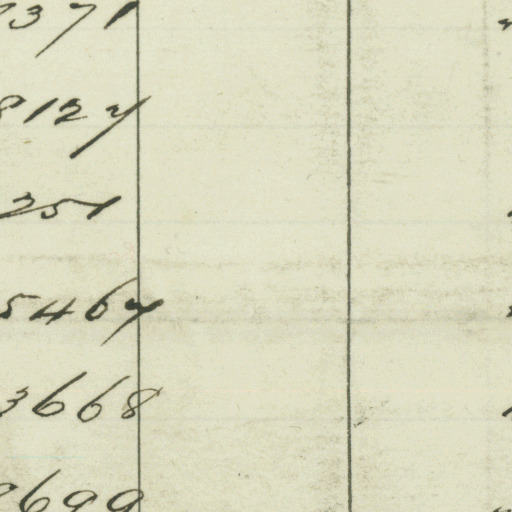 7371
8127
251
5467
3668
8699